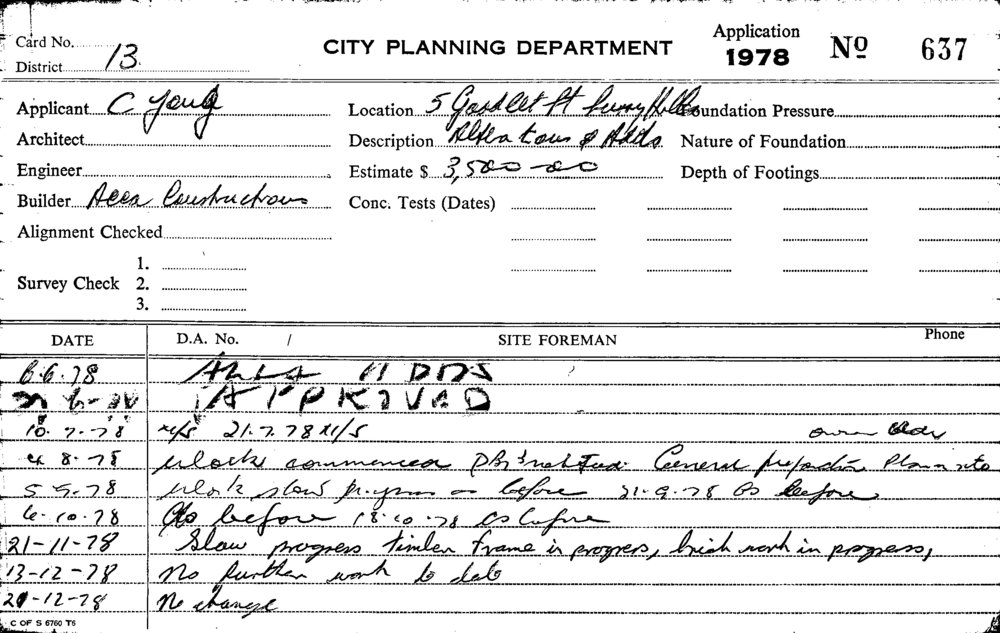 Card No.
District 13
CITY PLANNING DEPARTMENT
Application
1978 Nº 637
Applicant C Young
Architect
Engineer
Builder Acea Constructions
Alignment Checked
Survey Check 1.
2.
3.
Location 5 Goodlet St Surry Hills
Description Alterations & Adds
Estimate $ 3,500-00
Conc. Tests (Dates)
Foundation Pressure
Nature of Foundation
Depth of Footings
DATE D.A. No. / SITE FOREMAN Phone
6.6.78 ADDS
APPROVED
10.7.78 n/s 21.7.78 n/s
8.78 Work commenced General Plan
5.9.78 Work slow progress as before 21.9.78 as before
6.10.78 As before 18.10.78 as before
21-11-78 Slow progress timber frame in progress, brick work in progress,
13-12-78 No further work to date
21-12-78 No change
C OF S 6760 T6